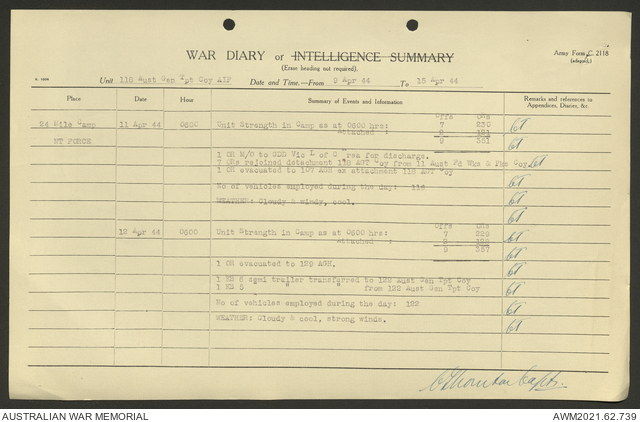 WAR DIARY or INTELLIGENCE SUMMARY
(Erase heading not required).
Army Form C. 2118
(adapted.)
Unit 118 Aust Gen Tpt Coy AIF Date and Time.—From 9 Apr 44 To 15 Apr 44
Place Date Hour Summary of Events and Information Remarks and references to
Appendices, Diaries, &c.
Offs ORs
24 Mile Camp 11 Apr 44 0600 Unit Strength in Camp as at 0600 hrs: 7 230
Attached : 2 121
NT FORCE 9 351
1 OR M/O to GDD Vic L of C Area for discharge.
7 ORs rejoined detachment 118 AGT Coy from 11 Aust Fd Wks & Pks Coy
1 OR evacuated to 107 AGH ex attachment 118 AGT Coy
No of vehicles employed during the day: 116
WEATHER: Cloudy & windy, cool.
Offs ORs
12 Apr 44 0600 Unit Strength in Camp as at 0600 hrs: 7 229
Attached : 2 128
9 357
1 OR evacuated to 129 AGH.
1 K5 6 semi trailer transferred to 122 Aust Gen Tpt Coy
1 K5 5 " " from 122 Aust Gen Tpt Coy
No of vehicles employed during the day: 122
WEATHER: Cloudy & cool, strong winds.
AUSTRALIAN WAR MEMORIAL AWM2021.62.739